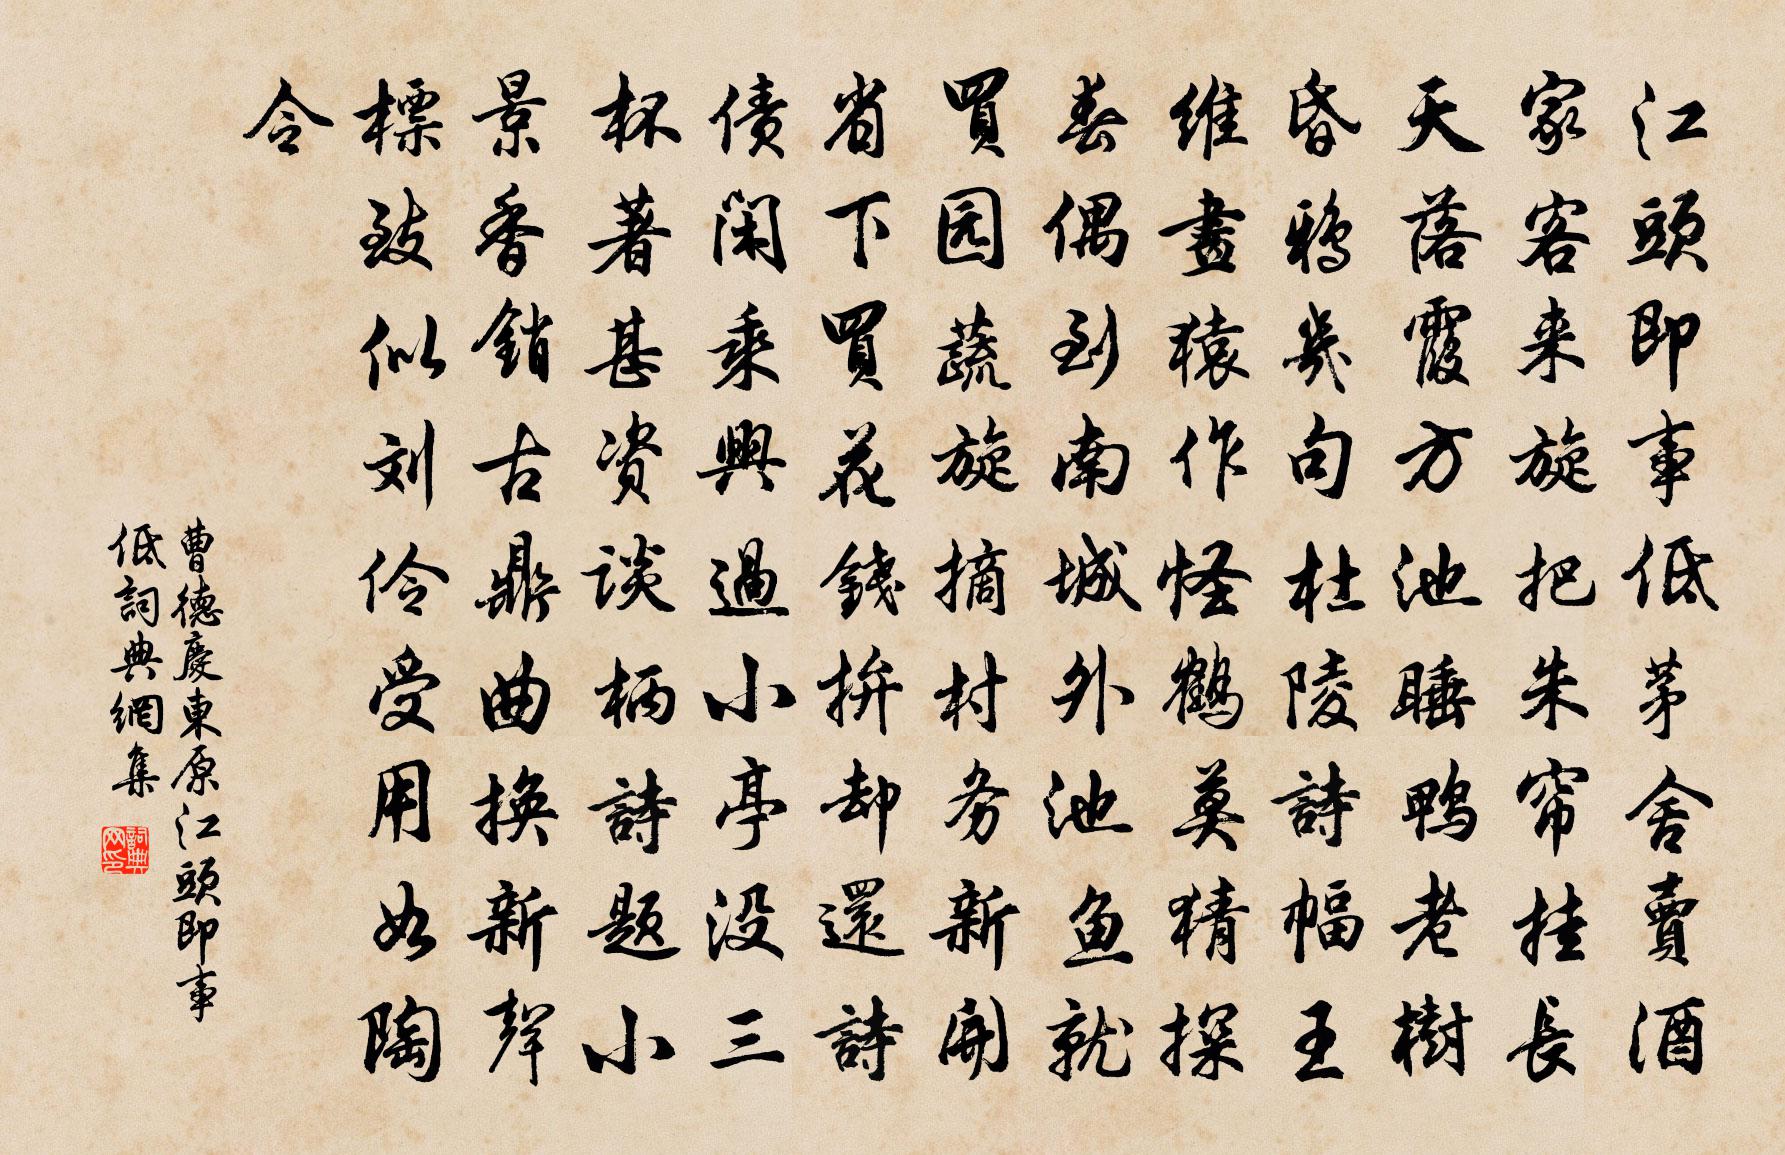 江頭即事低茅舍賣酒
家客来旋把朱帘挂長
天落霞方池睡鴨老樹
昏鴉幾句杜陵詩幅王
維畫猿作怪鶴莫猜探
春偶到南城外池魚就
買园蔬旋摘村务新開
省下買花錢拚却還詩
债閑乘興過小亭没三
杯著甚资談柄詩题小
景香銷古鼎曲換新聲
標致似刘伶受用如陶
令
曹德慶東原江頭即事
低詞典網集
詞典网印